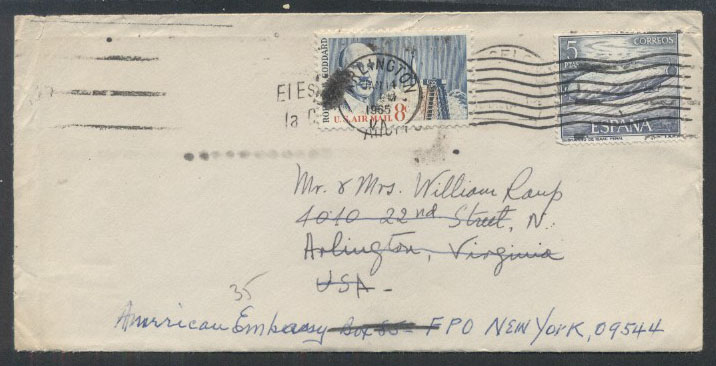 ROBERT H. GODDARD
U.S. AIR MAIL 8¢
ARLINGTON
1965
VA.
5
PTAS
CORREOS
ESPAÑA
El ES
la
Mr. & Mrs. William Raup
4040 22nd Street, N.
Arlington, Virginia
USA -
35
American Embassy Box 55 FPO NEW YORK, 09544